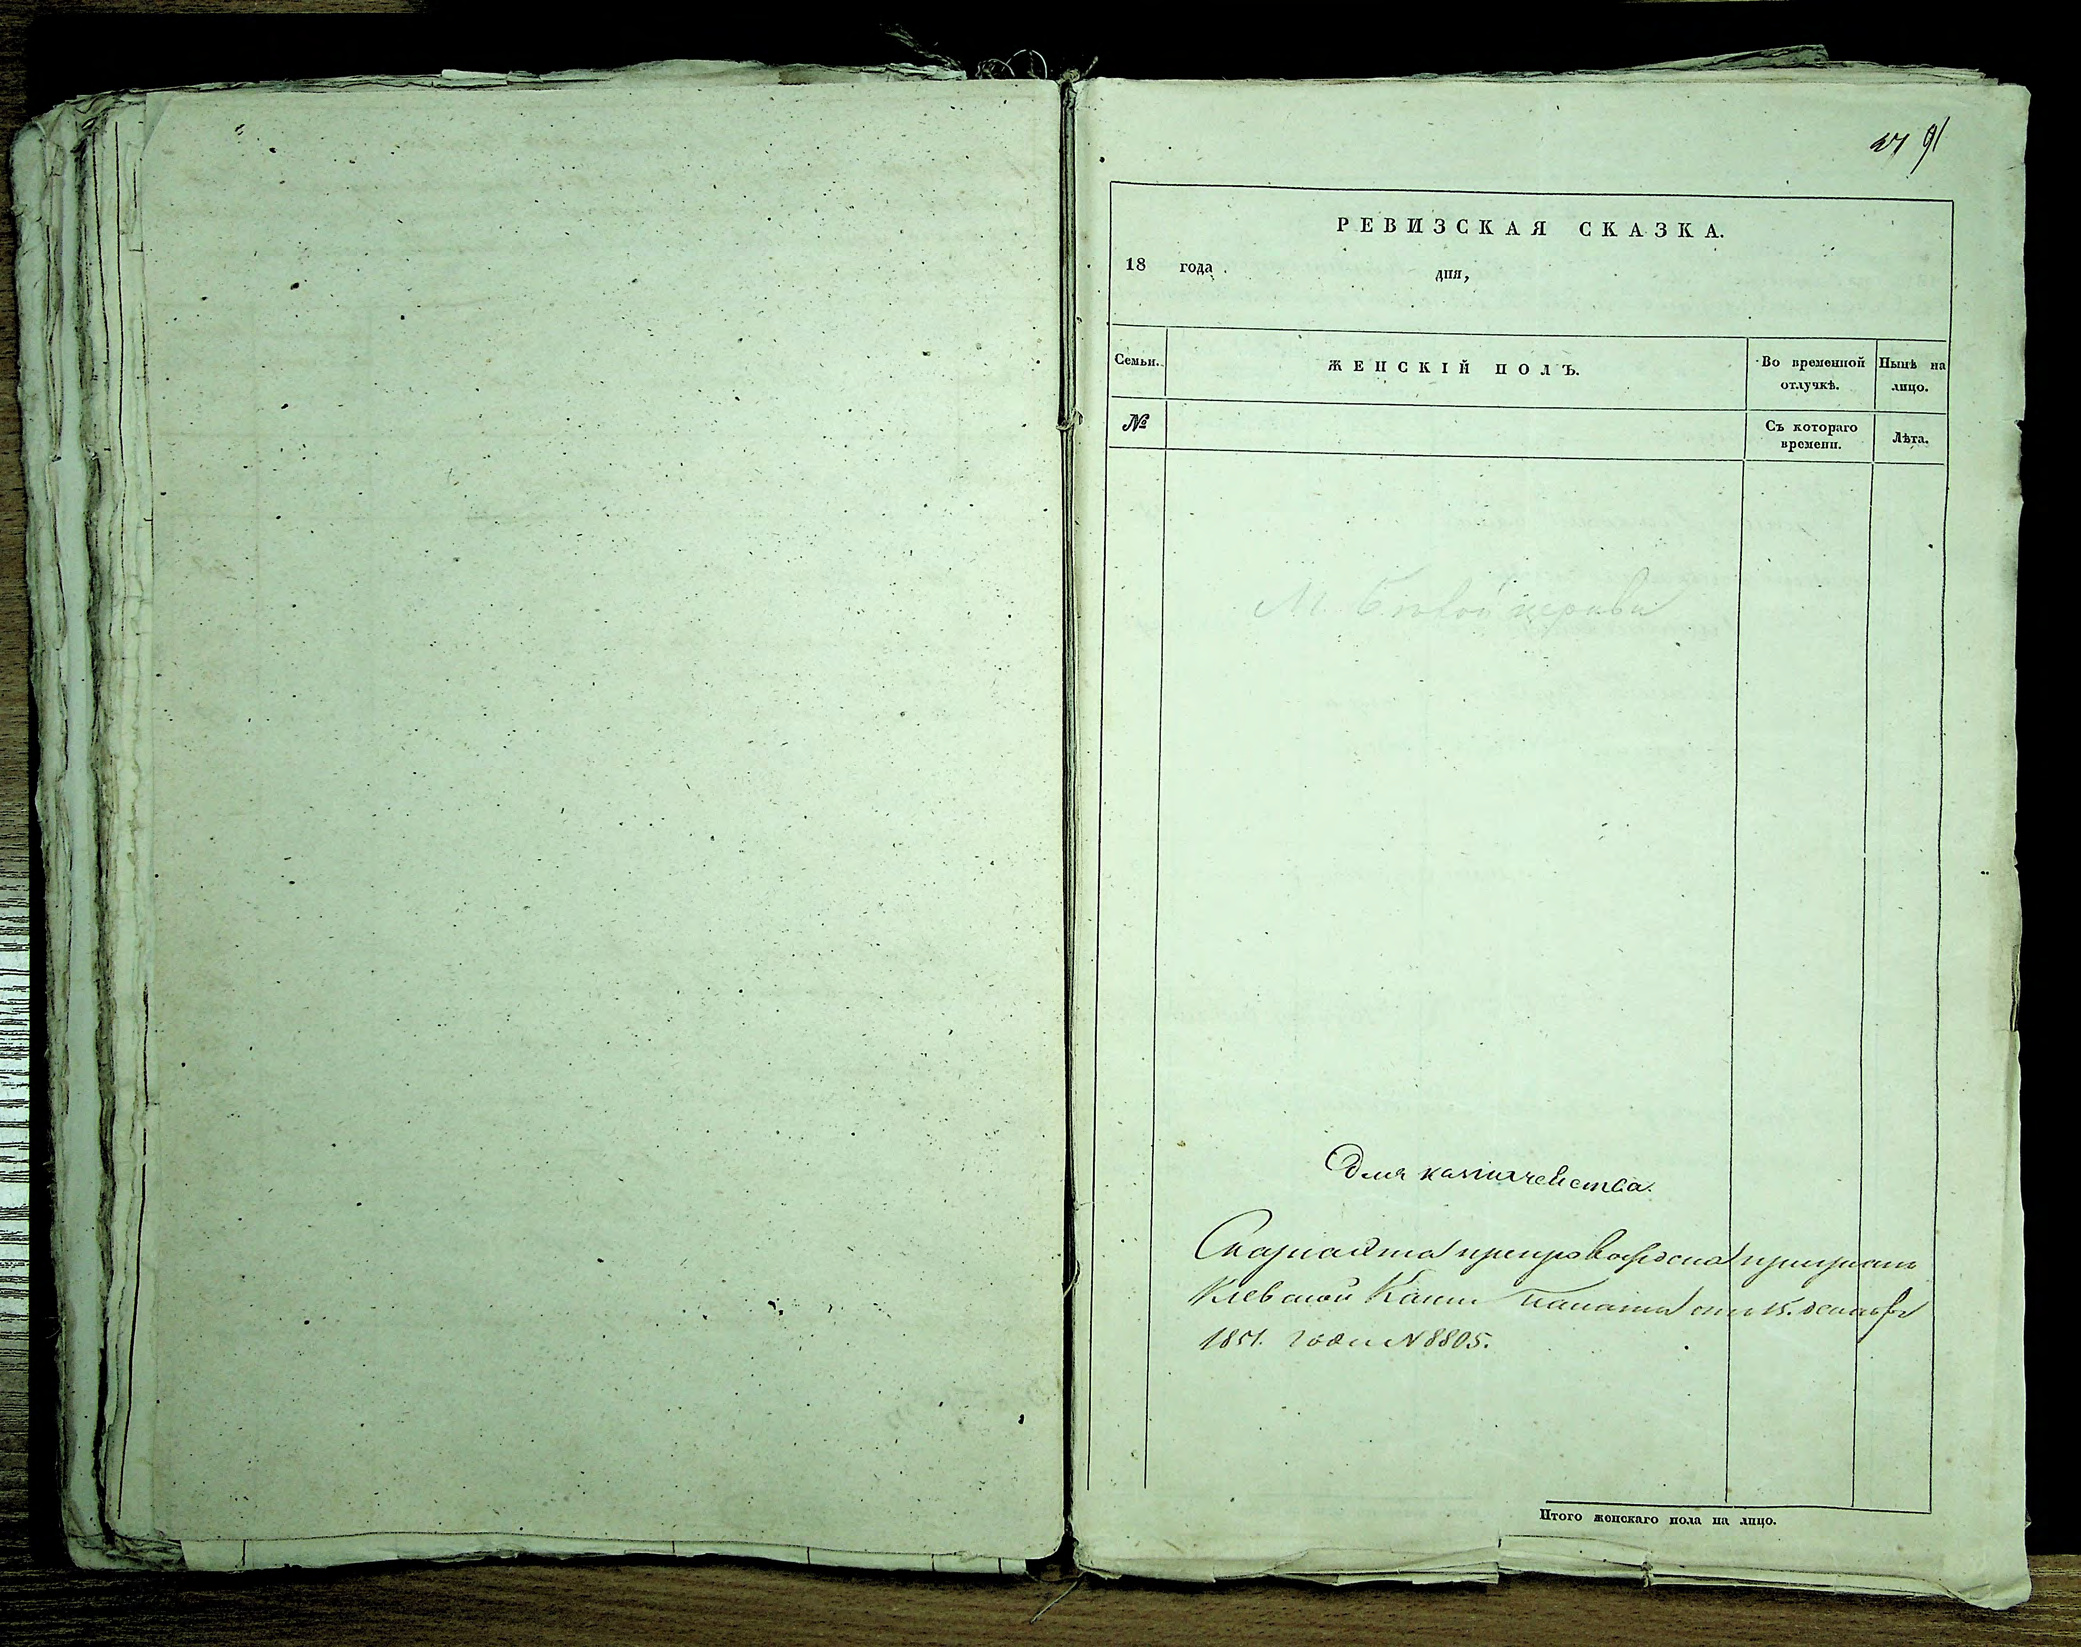 27 91
РЕВИЗСКАЯ СКАЗКА.
18 года дня,
Семьи. ЖЕНСКІЙ ПОЛЪ. Во временной отлучкѣ. Нынѣ на лицо.
№ Съ котораго времени. Лѣта.
М. Бѣлой церкви
Для казначейства.
Сказка эта препровождена при указѣ
Кіевской Казен Палаты отъ 15. декабря
1851. года N 8805.
Итого женскаго пола на лицо.